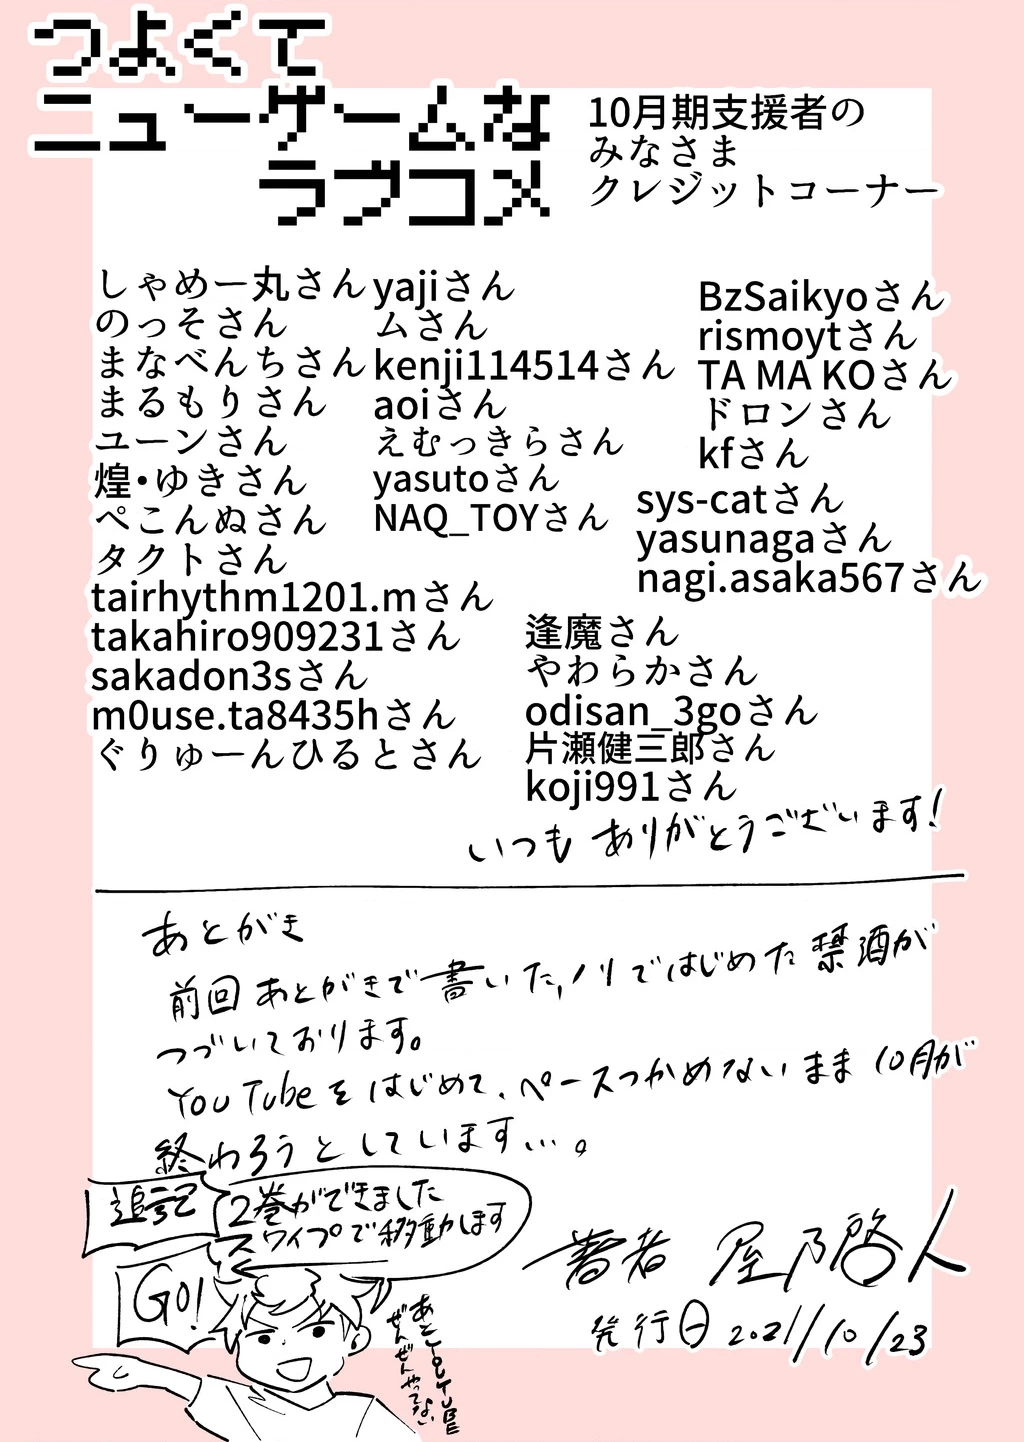 つよくて
ニューゲームな
ラブコメ
10月期支援者の
みなさま
クレジットコーナー
しゃめー丸さん
のっそさん
まなべんちさん
まるもりさん
ユーンさん
煌・ゆきさん
ぺこんぬさん
タクトさん
tairhythm1201.mさん
takahiro909231さん
sakadon3sさん
m0use.ta8435hさん
ぐりゅーんひるとさん
yajiさん
ムさん
kenji114514さん
aoiさん
えむっきらさん
yasutoさん
NAQ_TOYさん
BzSaikyoさん
rismoytさん
TA MA KOさん
ドロンさん
kfさん
sys-catさん
yasunagaさん
nagi.asaka567さん
逢魔さん
やわらかさん
odisan_3goさん
片瀬健三郎さん
koji991さん
いつもありがとうございます!
あとがき
前回あとがきで書いた、ノリではじめた禁酒が
つづいております。
YouTubeをはじめて、ペースつかめないまま10月が
終わろうとしています…。
追記
2巻ができました
スワイプで移動します
GO!
あとYouTUBE
ぜんぜんやってない
著者 屋乃啓人
発行日 2021/10/23